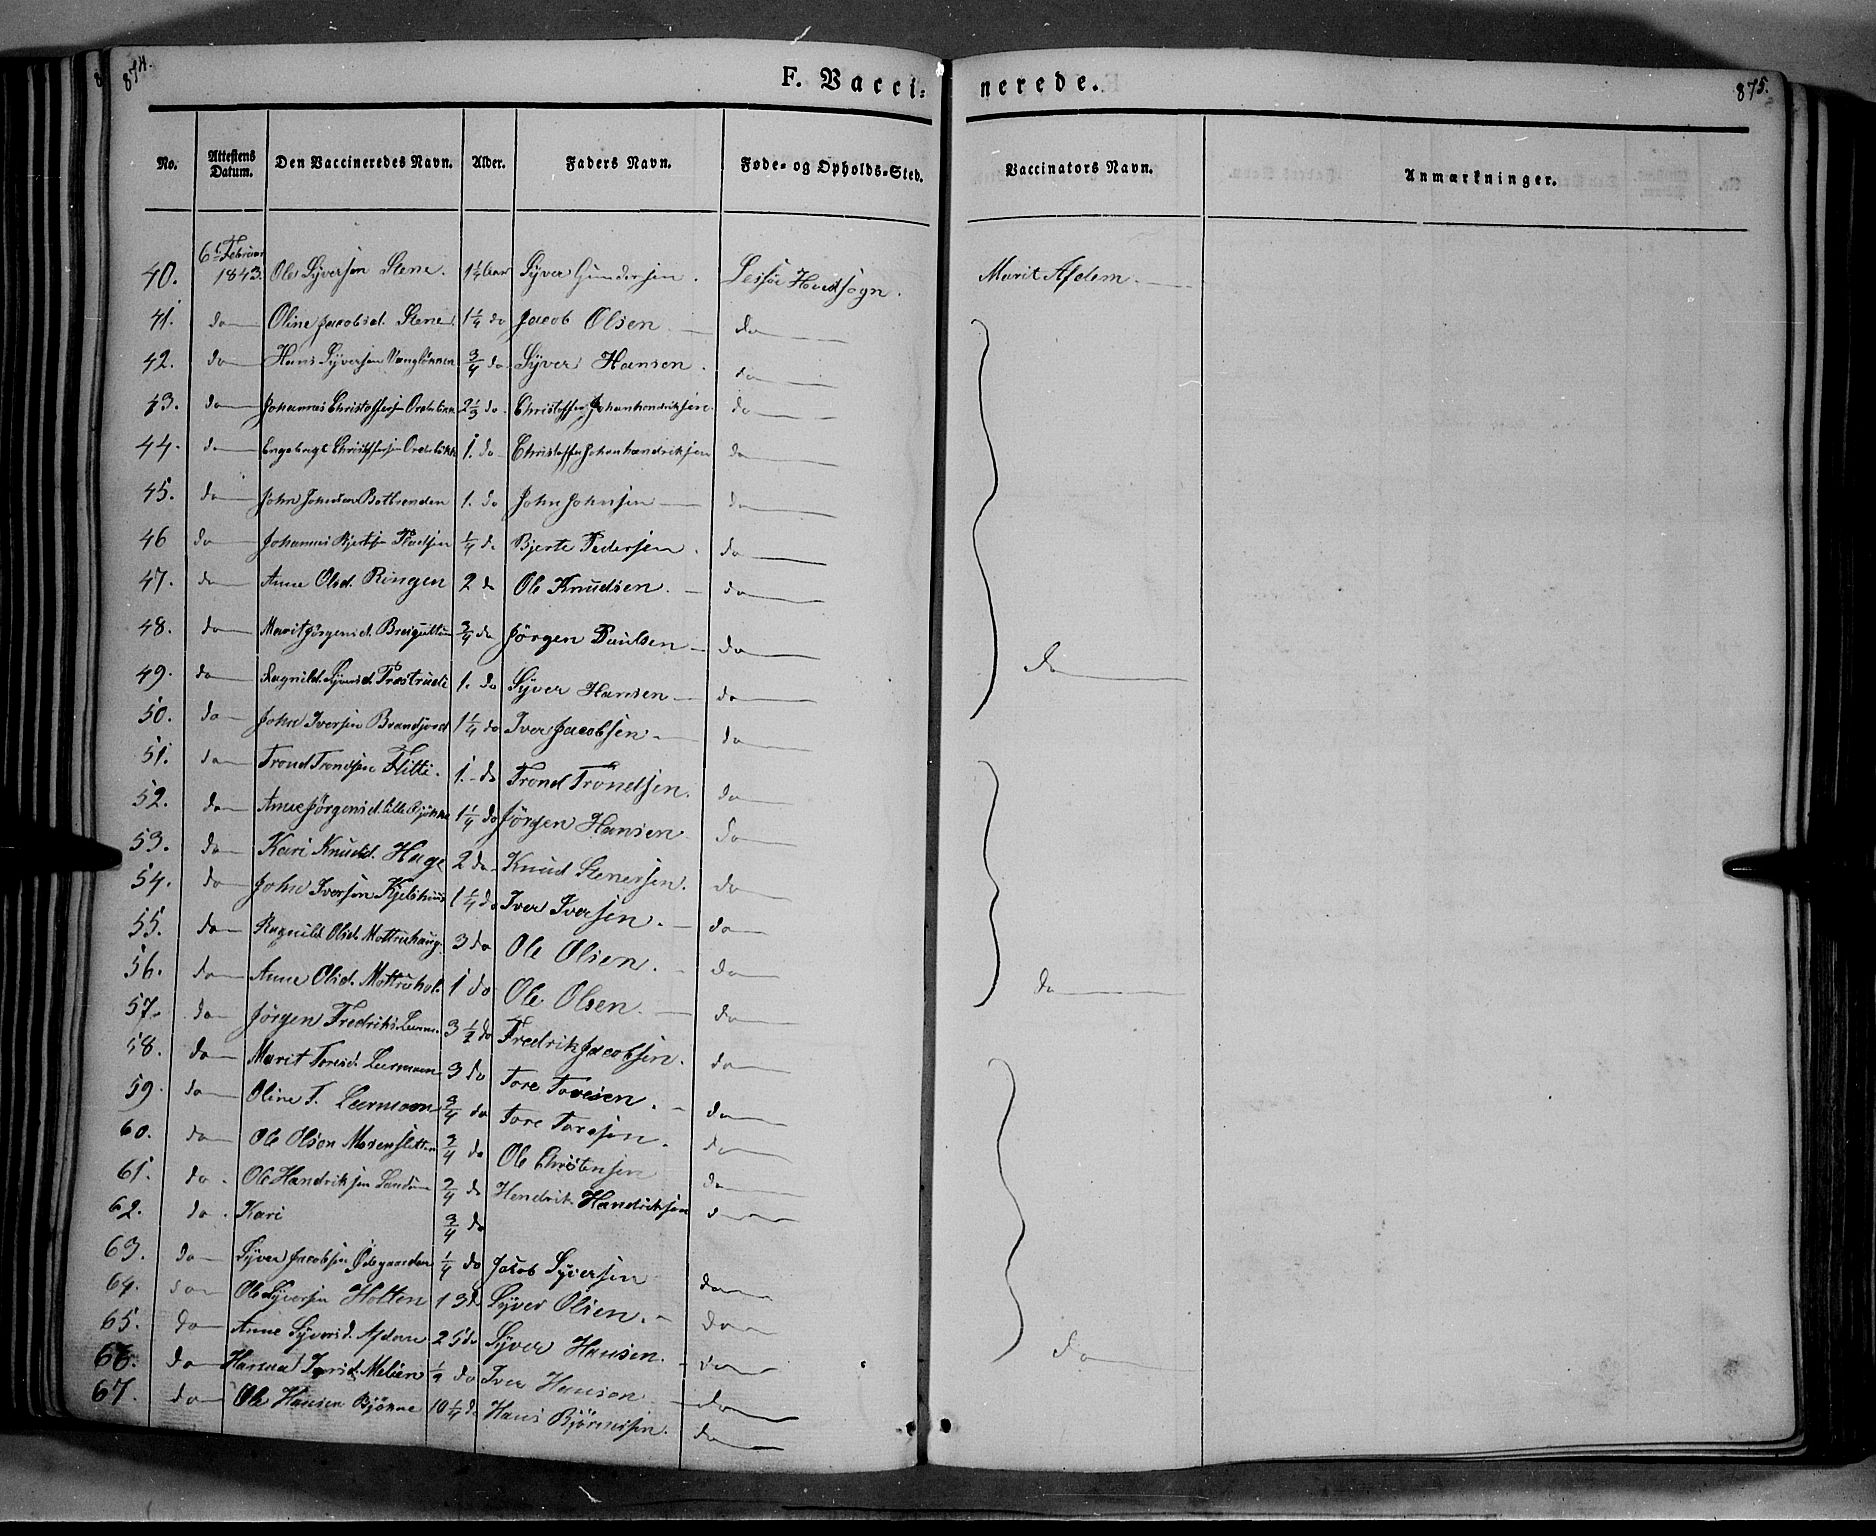 874.
F. Vacci-
nerede.
875.
No.
Attestens Datum.
Den Vaccineredes Navn.
Alder.
Faders Navn.
Føde- og Opholds-Sted.
Vaccinators Navn.
Anmærkninger.
40. 6t Februar 1843. Ole Syversen Stene. 1 1/4 Aar Syver Gundersen. Lessøe Hovedsogn. Marit Afdem.
41. do Oline Jacobsd. Stene. 1 1/4 do Jacob Olsen do
42. do Hans Syversen 3/4 do Syver Hansen. do
43. do Johannes Christoffersen 2 1/3 do. Christoffer Johanhendriksen. do
44. do Engebrigt Christoffersen 1. do Christoffer Johanhendriksen do
45. do John Johnsen Botheenden 1. do John Johnsen do
46 do Johannes Bjertsen 1/4 do Bjerte Pedersen. do
47. do Anne Olsd. Ringen 2 do Ole Knudsen. do
48. do Marit Jørgensd. 3/4 do Jørgen Paulsen do
49. do Ragnild Syversd. 1. do Syver Hansen do do
50. do John Iversen 1 1/4 do Iver Jacobsen. do
51. do Trond Trondsen Flitti. 1. do Trond Trondsen. do
52. do Anne Jørgensd. 1 1/4 do Jørgen Hansen do
53. do Kari Knudsd. Hage 2 do Knud Stenersen. do
54. do John Iversen Kjelshuus 1 1/4 do Iver Iversen. do
55. do Ragnild Olsd. Mottruhaug. 3 do Ole Olsen. do
56. do Anne Olsd. Mottruhol. 1 do Ole Olsen. do do
57. do Jørgen Fredriks. 3 1/2 do Fredrik Jacobsen. do
58. do Marit Toresd. Leermoen 3 do Tore Toresen. do
59. do Oline T. Leermoen 3/4 do Tore Toresen. do
60. do Ole Olsen Mosensletten 3/4 do Ole Christensen do
61. do. Ole Handriksen 2/4 do Hendrik Handriksen do
62. do. Kari 3/4 do
63. do Syver Jacobsen Ødegaarden 1/4 do Jacob Syversen do
64. do Ole Syversen Holten 1 3 Syver Olsen. do
65. do Anne Syversd. Afdem 2 5 do Syver Hansen. do do
66. do Melien 1/2 do Iver Hansen do
67. do Ole Hansen Bjøkne 10 1/4 do Hans Bjørnsen. do